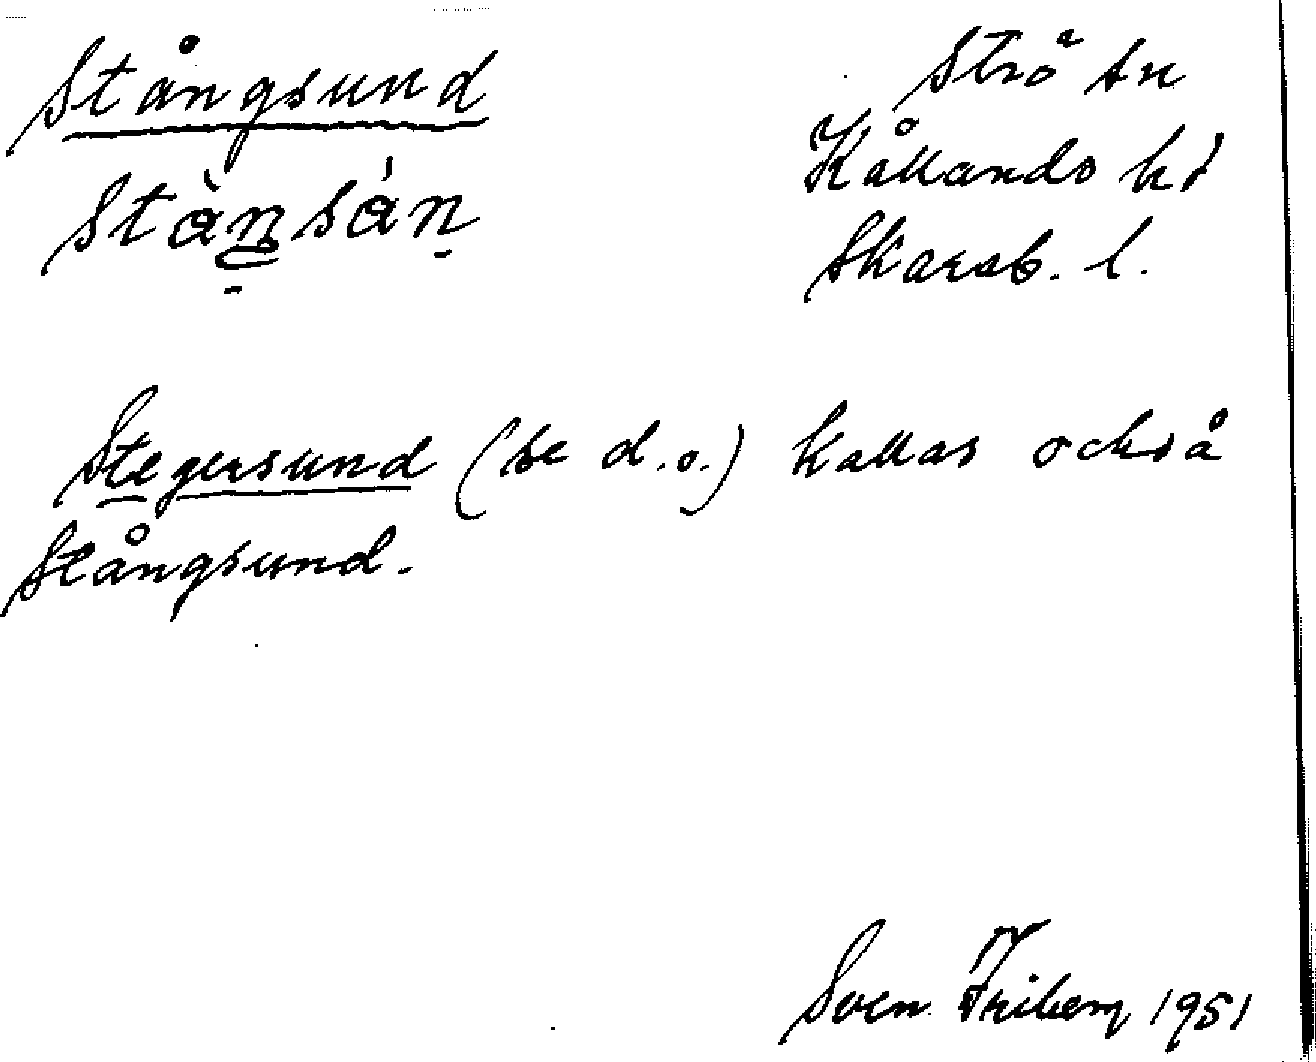 Stångsund
Strö sn
Kållands hd
stàn̠sán̠
Skarab. l.
Stegersund (se d.o.) kallas också
Stångsund.
Sven Friberg 1951